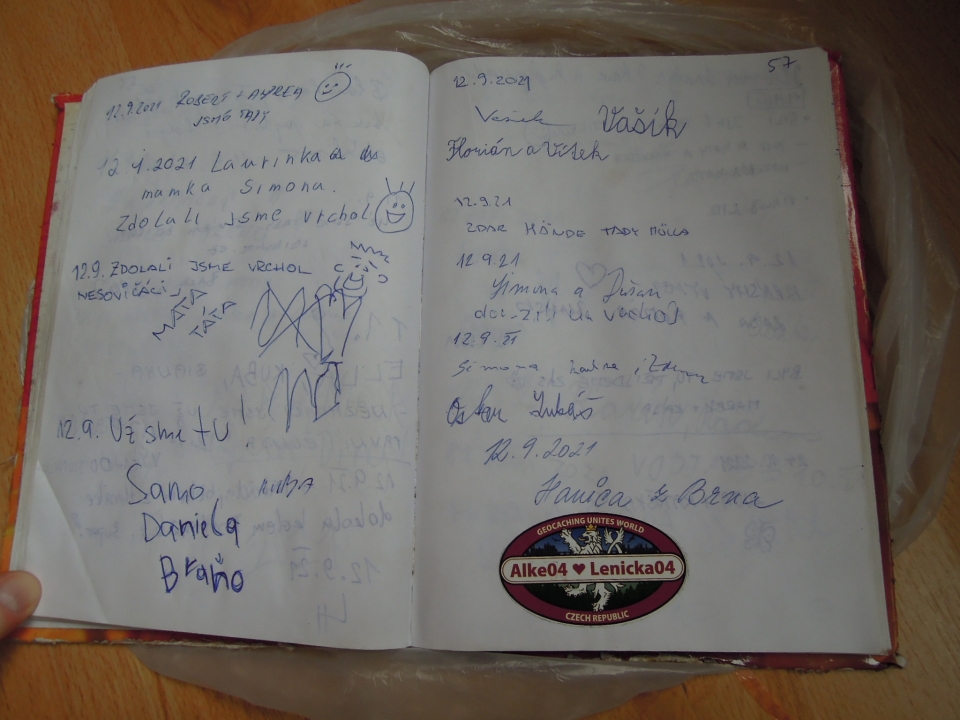 12.9.2021 ROBERT + ANDREA
JSME TADY
12.9.2021 Laurinka a
mamka Simona.
Zdolali jsme vrchol
12.9. ZDOLALI JSME VRCHOL
NESOVIČÁCI
MÁTA
TÁTA
12.9. Už sme tu!
Samo KUBA
Daniela
Braňo
57
12.9.2021
Vašík Vašík
Florián a Vítek
12.9.21
ZDAR HÁNDE TADY MÜLLA
12.9.21
Simona a Dušan
dorazili na vrchol
12.9.21
Simona
Oskar Lukáš
12.9.2021
Hanića z Brna
GEOCACHING UNITES WORLD
Alke04 ♥ Lenicka04
CZECH REPUBLIC